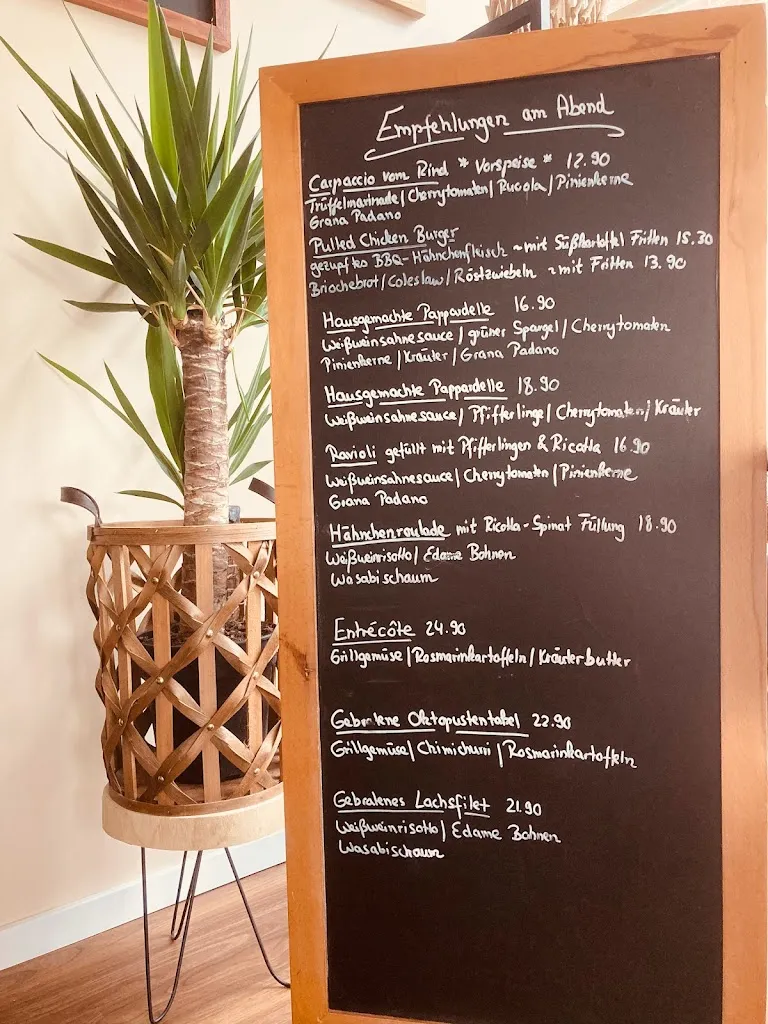 Empfehlungen am Abend
Carpaccio vom Rind * Vorspeise * 12.90
Trüffelmarinade/Cherrytomaten/Rucola/Pinienkerne
Grana Padano
Pulled Chicken Burger
gezupftes BBQ-Hähnchenfleisch ~mit Süßkartoffel Fritten 15.30
Briochebrot/Coleslaw/Röstzwiebeln ~mit Fritten 13.90
Hausgemachte Pappardelle 16.90
Weißweinsahnesauce/grüner Spargel/Cherrytomaten
Pinienkerne/Kräuter/Grana Padano
Hausgemachte Pappardelle 18.90
Weißweinsahnesauce/Pfifferlinge/Cherrytomaten/Kräuter
Ravioli gefüllt mit Pfifferlingen & Ricotta 16.90
Weißweinsahnesauce/Cherrytomaten/Pinienkerne
Grana Padano
Hähnchenroulade mit Ricotta-Spinat Füllung 18.90
Weißweinrisotto/Edame Bohnen
Wasabischaum
Entrécôte 24.90
Grillgemüse/Rosmarinkartoffeln/Kräuterbutter
Gebratene Oktopustentakel 22.90
Grillgemüse/Chimichurri/Rosmarinkartoffeln
Gebratenes Lachsfilet 21.90
Weißweinrisotto/Edame Bohnen
Wasabischaum